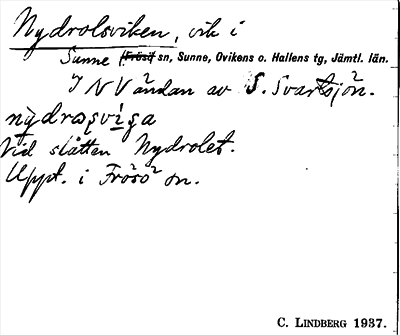 Nydrolsviken, vik i
Sunne (Frösö) sn, Sunne, Ovikens o. Hallens tg, Jämtl. län.
I NV ändan av S. Svartsjön.
Vid slåtten Nydrolet.
Uppt. i Frösö sn.
C. LINDBERG 1937.